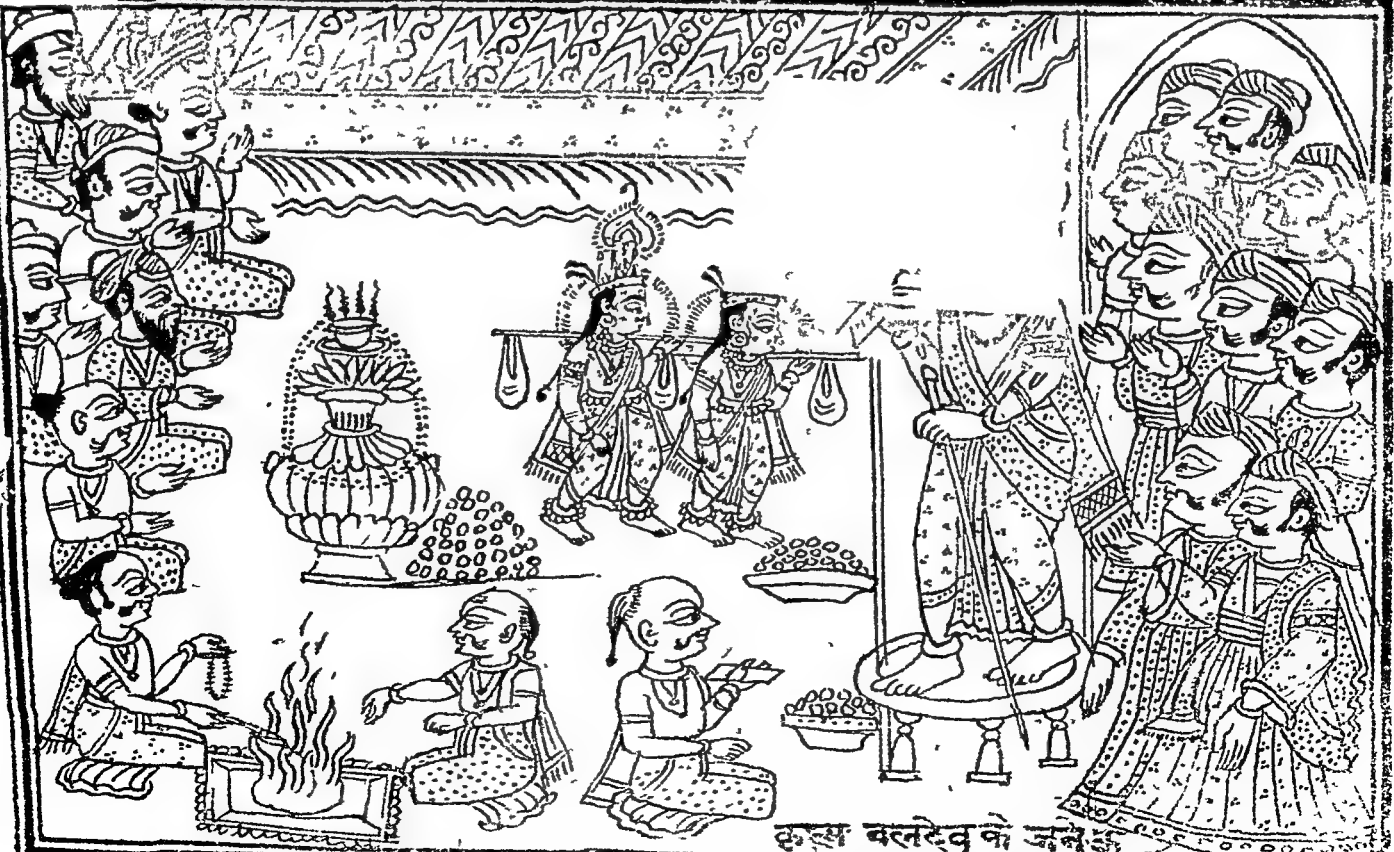 कृस्न बलदेव के जनेऊ